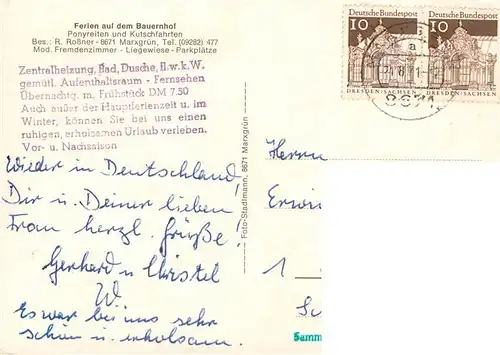 Ferien auf dem Bauernhof
Ponyreiten und Kutschfahrten
Bes.: R. Roßner - 8671 Marxgrün, Tel. (09282) 477
Mod. Fremdenzimmer - Liegewiese - Parkplätze
Zentralheizung, Bad, Dusche, fl.w.k.W.
gemütl. Aufenthaltsraum - Fernsehen
Übernachtg. m. Frühstück DM 7.50
Auch außer der Hauptferienzeit u. im
Winter, können Sie bei uns einen
ruhigen, erholsamen Urlaub verleben.
Vor- u. Nachsaison
Wieder in Deutschland!
Dir u. Deiner lieben
Frau herzl. Grüße!
Gerhard u. Christel
W.
Es war bei uns sehr
schön u. erholsam.
Foto-Stadlmann, 8671 Marxgrün
10 Deutsche Bundespost
DRESDEN/SACHSEN
10 Deutsche Bundespost
DRESDEN/SACHSEN
a
8671
Herrn
Erwin
1
Samm